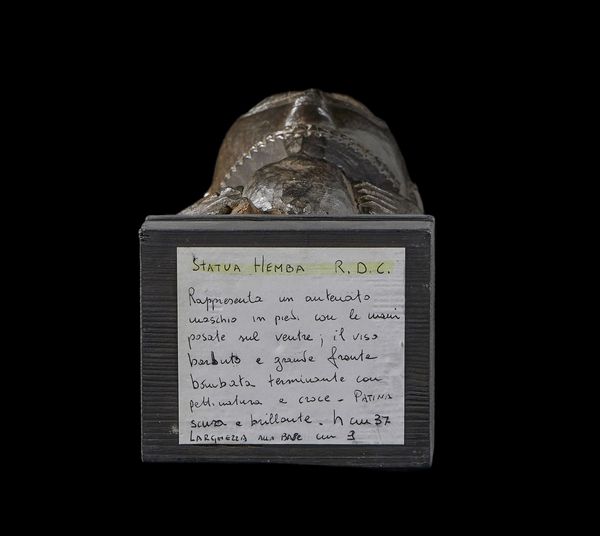 STATUA HEMBA R.D.C.
Rappresenta un antenato
maschio in piedi con le mani
posate sul ventre; il viso
barbuto e grande fronte
bombata terminante con
pettinatura a croce - PATINA
scura e brillante. h cm 37
LARGHEZZA ALLA BASE cm 3